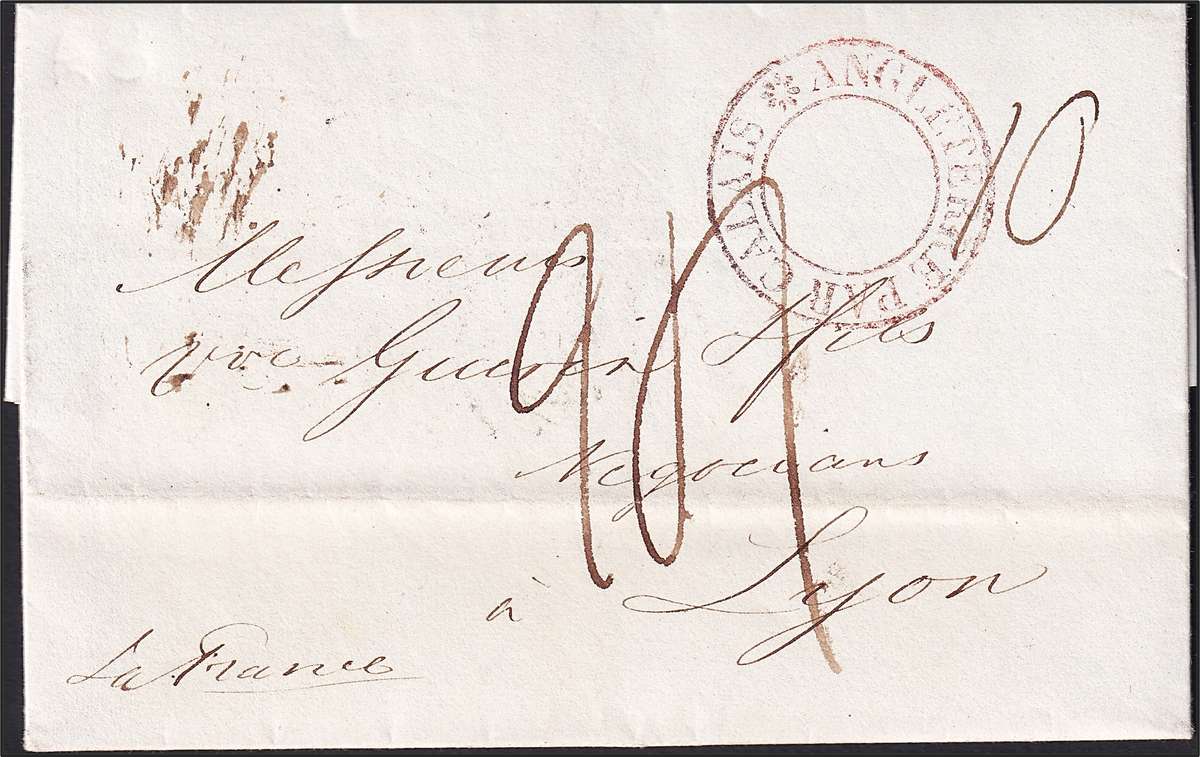 ANGLETERRE PAR CALAIS
10
Messieurs
Vve Guerin & fils
Negocians
à Lyon
La France